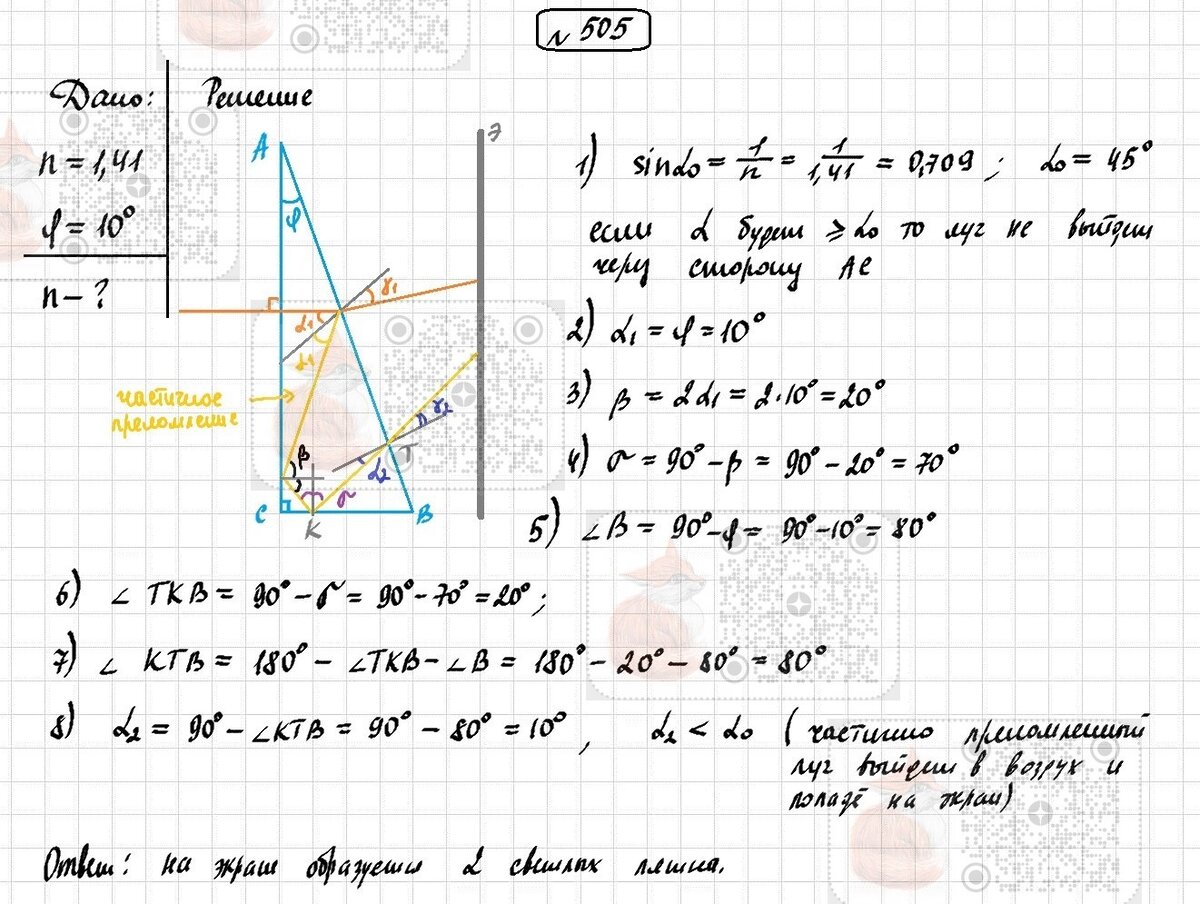 N 505
Дано:
n = 1,41
φ = 10°
n - ?
Решение
A
φ
Э
α₁
γ₁
α₁
частичное
преломление
β
α₂
γ₂
T
σ
C
K
B
1) sinα₀ = 1/n = 1/1,41 = 0,709 ; α₀ = 45°
если α будет ≥ α₀ то луг не выйдет
через сторону AC
2) α₁ = φ = 10°
3) β = 2α₁ = 2·10° = 20°
4) σ = 90° - β = 90° - 20° = 70°
5) ∠B = 90° - φ = 90° - 10° = 80°
6) ∠ TKB = 90° - σ = 90° - 70° = 20° ;
7) ∠ KTB = 180° - ∠TKB - ∠B = 180° - 20° - 80° = 80°
8) α₂ = 90° - ∠KTB = 90° - 80° = 10° , α₂ < α₀ (частично преломленный
луг выйдет в воздух и
попадё на экран)
Ответ: на экране образуется 2 светлых пятна.